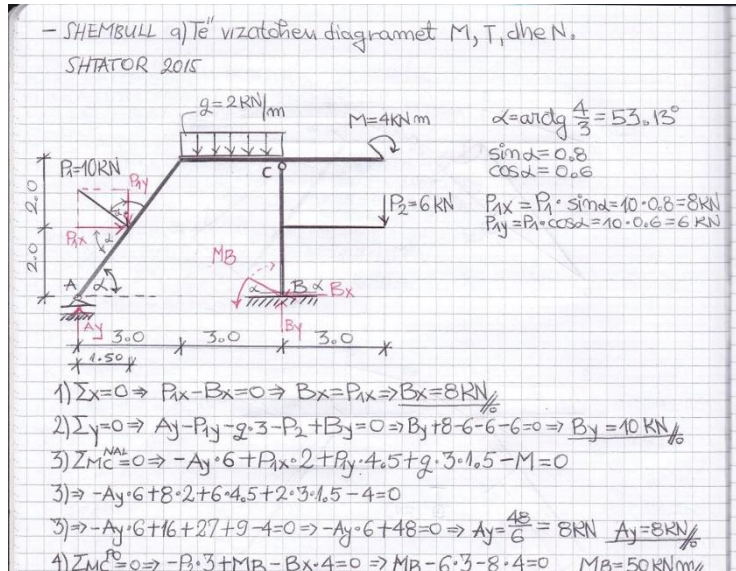 - SHEMBULL a) Të vizatohen diagramet M, T, dhe N.
SHTATOR 2015
g=2KN/m
M=4KNm
α=arctg 4/3 = 53.13°
sinα=0.8
cosα=0.6
P1=10KN
P1y
P1x
α
α
α
C
P2=6KN
P1x = P1·sinα=10·0.8=8KN
P1y=P1·cosα=10·0.6=6KN
2.0
2.0
MB
A
α
B
α
Bx
Ay
By
3.0
3.0
3.0
1.50
1) Σx=0 ⇒ P1x-Bx=0 ⇒ Bx=P1x ⇒ Bx=8KN//
2) Σy=0 ⇒ Ay-P1y-g·3-P2+By=0 ⇒ By+8-6-6-6=0 ⇒ By=10KN//
3) ΣMC^NAL=0 ⇒ -Ay·6+P1x·2+P1y·4.5+g·3·1.5-M=0
3) ⇒ -Ay·6+8·2+6·4.5+2·3·1.5-4=0
3) ⇒ -Ay·6+16+27+9-4=0 ⇒ -Ay·6+48=0 ⇒ Ay=48/6= 8KN Ay=8KN//
4) ΣMC^PO=0 ⇒ -P2·3+MB-Bx·4=0 ⇒ MB-6·3-8·4=0 MB=50KNm//